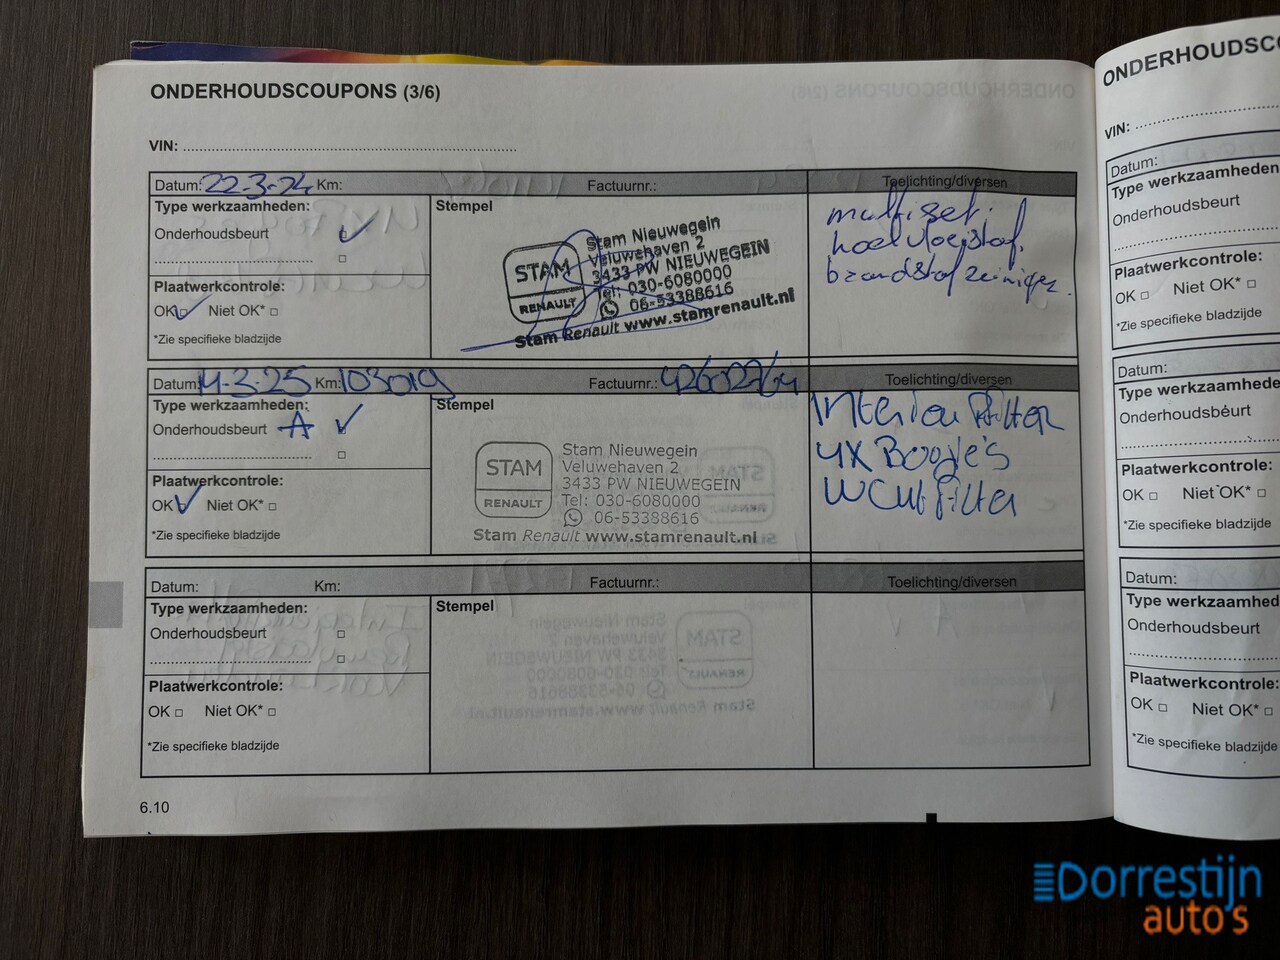 ONDERHOUDSCOUPONS (3/6)
VIN:
Datum: 22-3-24 Km: Factuurnr.: Toelichting/diversen
Type werkzaamheden:
Onderhoudsbeurt
Plaatwerkcontrole:
OK Niet OK*
*Zie specifieke bladzijde
Stempel
STAM
RENAULT
Stam Nieuwegein
Veluwehaven 2
3433 PW NIEUWEGEIN
Tel: 030-6080000
06-53388616
Stam Renault www.stamrenault.nl
multiset.
koelvloeistof,
brandstof reiniger.
Datum: 14-3-25 Km: 103019 Factuurnr.: Toelichting/diversen
Type werkzaamheden:
Onderhoudsbeurt A
Plaatwerkcontrole:
OK Niet OK*
*Zie specifieke bladzijde
Stempel
STAM
RENAULT
Stam Nieuwegein
Veluwehaven 2
3433 PW NIEUWEGEIN
Tel: 030-6080000
06-53388616
Stam Renault www.stamrenault.nl
Interieur Filter
4X Bougie's
Filter
Datum: Km: Factuurnr.: Toelichting/diversen
Type werkzaamheden:
Onderhoudsbeurt
Plaatwerkcontrole:
OK Niet OK*
*Zie specifieke bladzijde
Stempel
6.10
ONDERHOUDSC
VIN:
Datum:
Type werkzaamheden
Onderhoudsbeurt
Plaatwerkcontrole:
OK Niet OK*
*Zie specifieke bladzijde
Datum:
Type werkzaamhede
Onderhoudsbeurt
Plaatwerkcontrole:
OK Niet OK*
*Zie specifieke bladzijde
Datum:
Type werkzaamhed
Onderhoudsbeurt
Plaatwerkcontrole:
OK Niet OK*
*Zie specifieke bladzijde
Dorrestijn
auto's